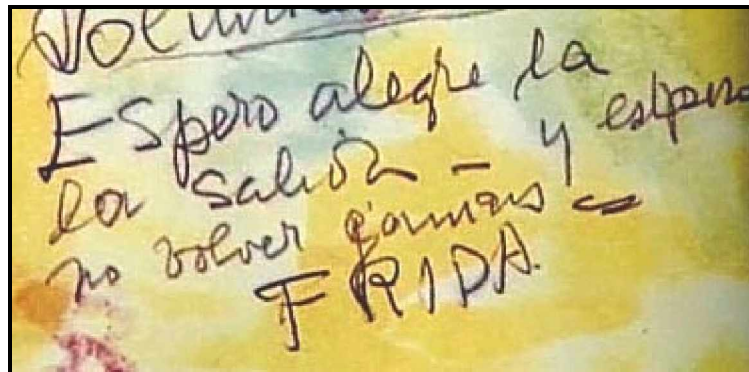 Espero alegre la
la salida – y espero
no volver jamás –
FRIDA.